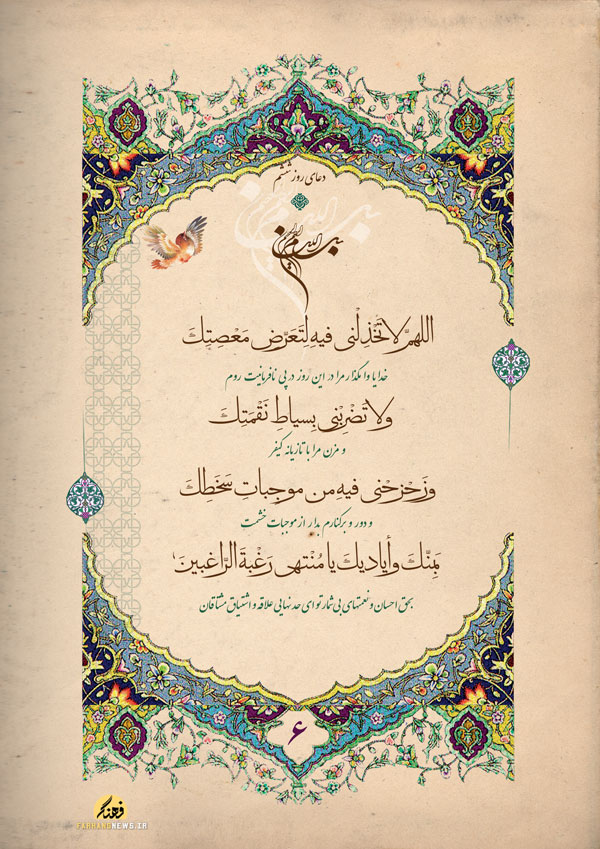 دعای روز ششم
بسم الله الرحمن الرحیم
اللهمّ لا تَخْذِلْنی فیهِ لِتَعَرّضِ مَعْصِیَتِكَ
خدایا وا مگذار مرا در این روز در پی نافرمانیت روم
ولا تَضْرِبْنی بِسیاطِ نَقْمَتِكَ
و مزن مرا با تازیانه کیفر
وزَحْزحْنی فیهِ من موجِباتِ سَخَطِكَ
و دور و برکنارم بدار از موجبات خشمت
بِمَنّكَ وأیادیكَ یا مُنْتهى رَغْبةَ الرّاغبینَ
بحق احسان و نعمتهای بی شمار تو ای حد نهایی علاقه و اشتیاق مشتاقان
۶
فرهنگ
FARHANGNEWS.IR